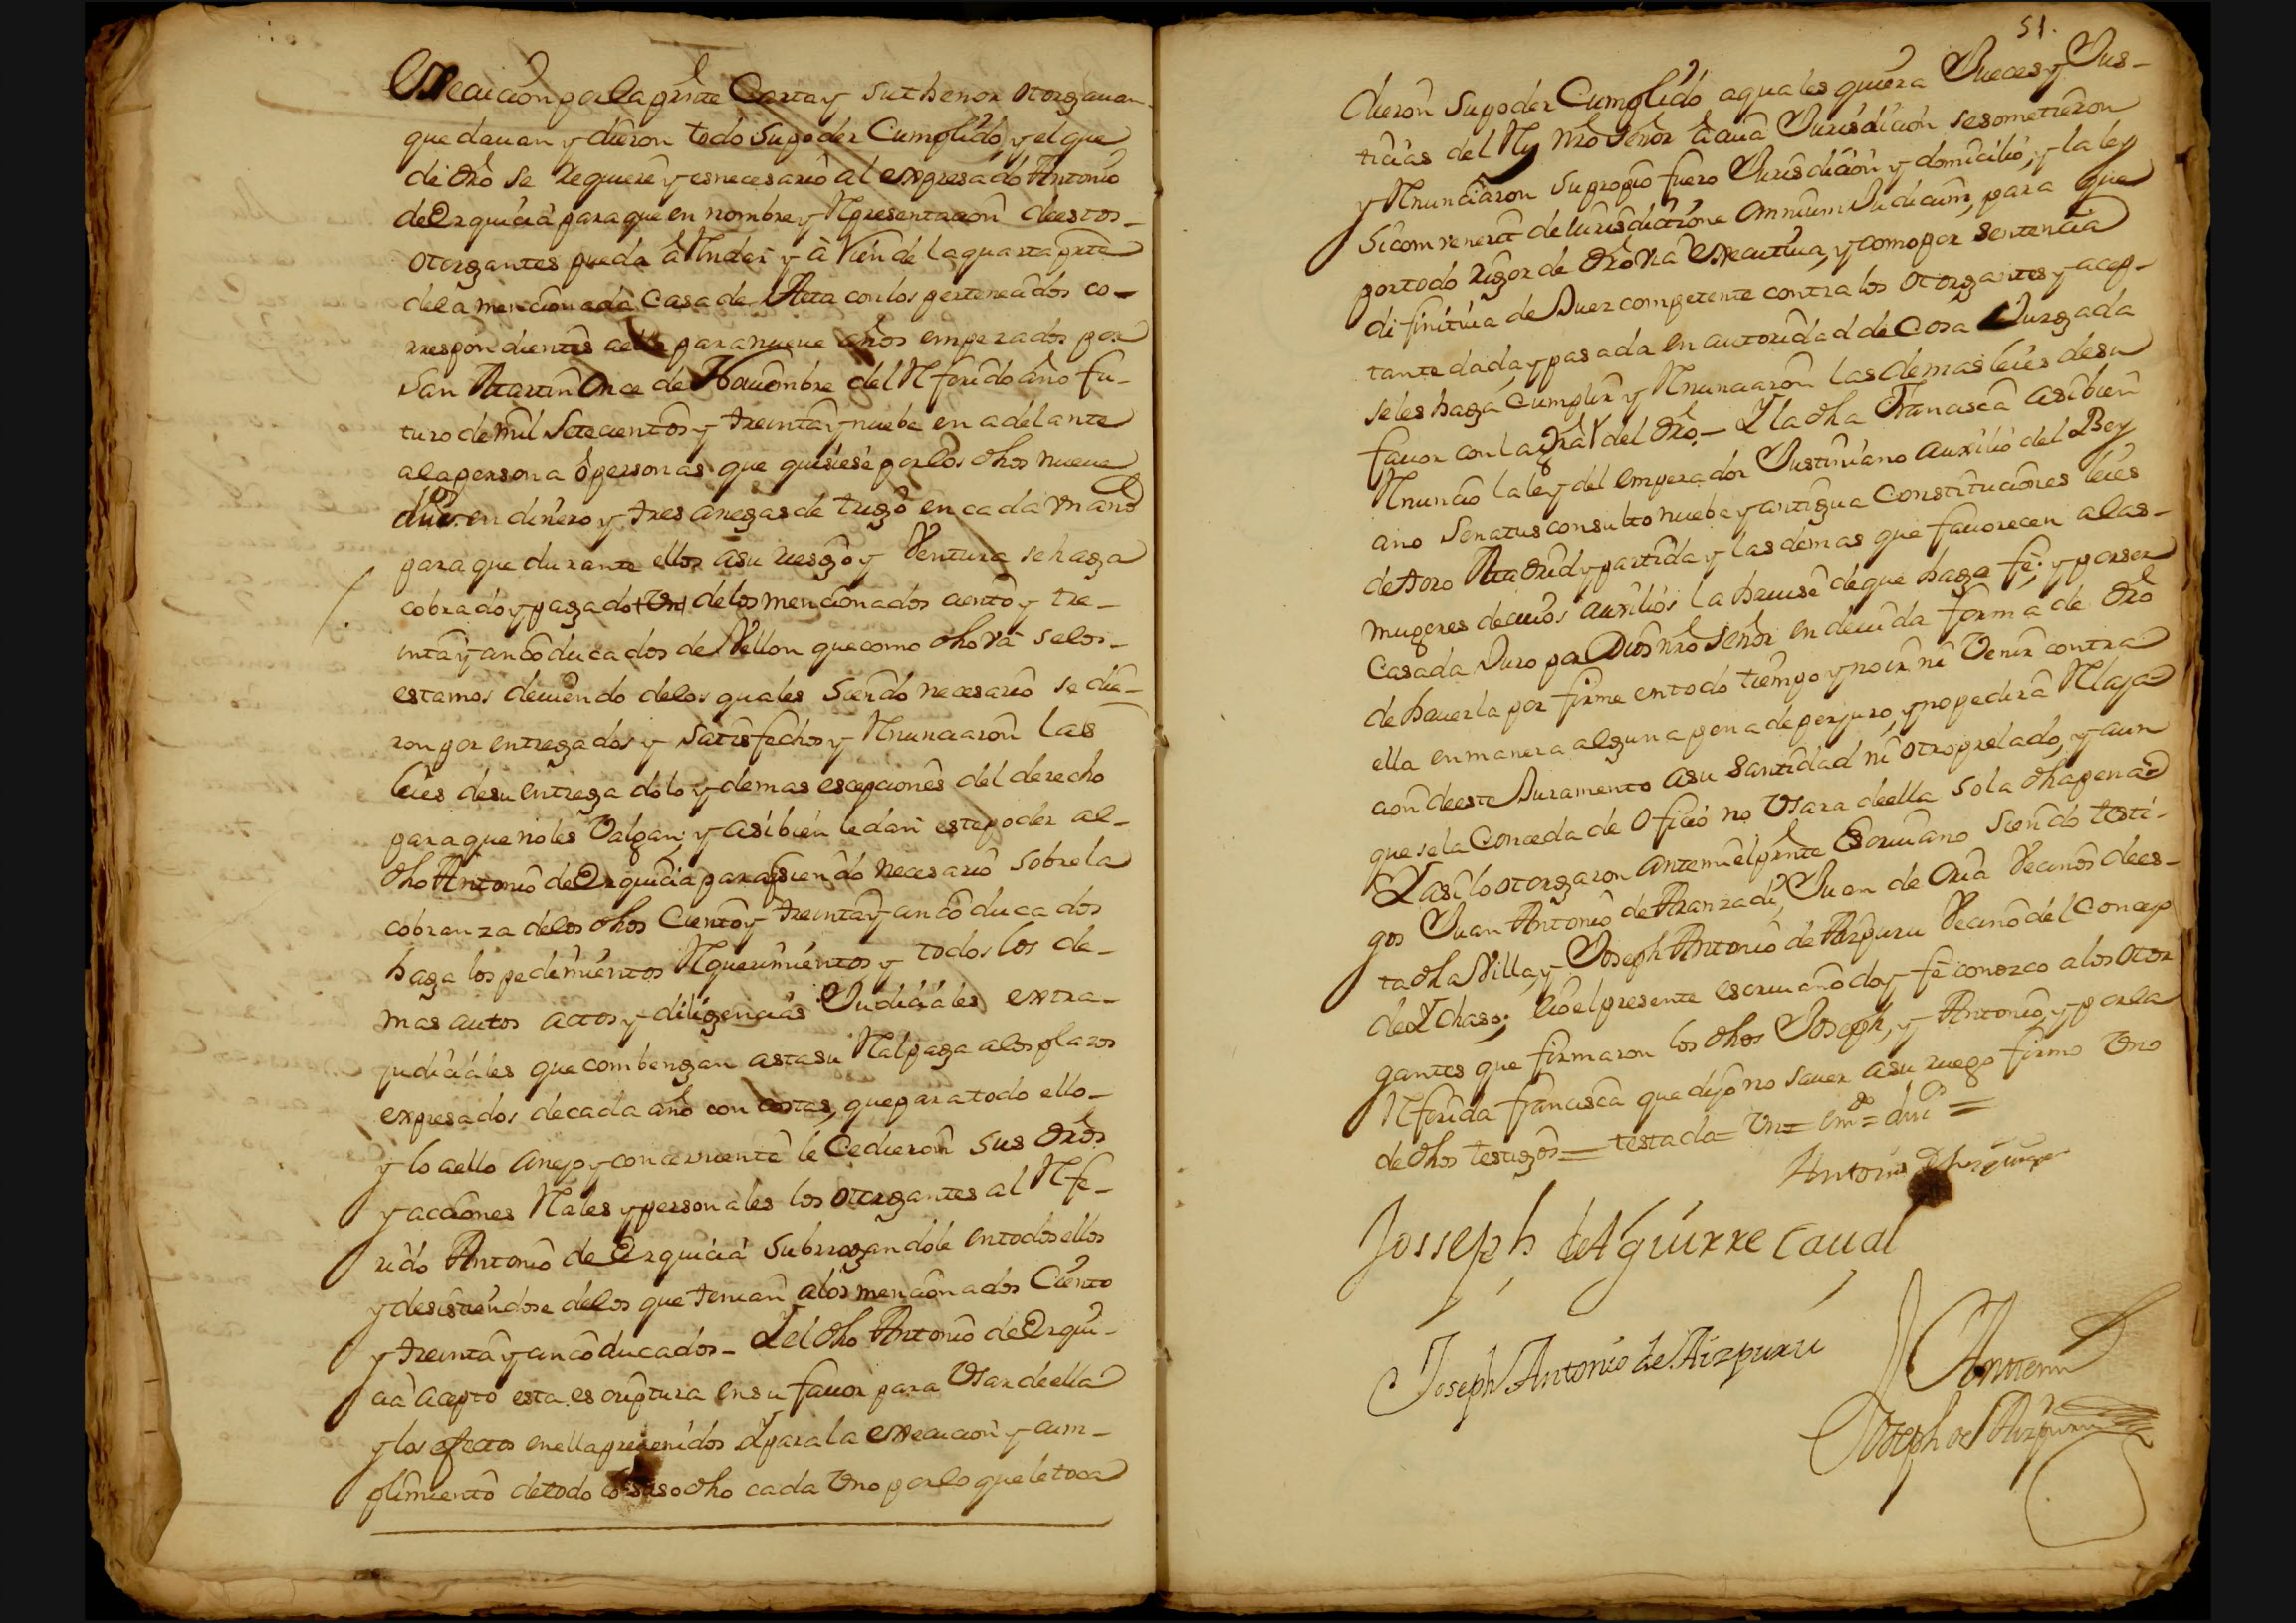 Execucion por la presnte Carta y su thenor otorgauan
que dauan y dieron todo su poder Cumplido, y el que
de dro se requiere y es necesario al expresado Antonio
de Erquicia para que en nombre y Representacion de estos
otorgantes pueda â Rendar y â Vien de la quarta prte
de la mencionada Casa de con los pertenecidos co-
rrespondientes a ella para nueue años empezados por
San Martin Once de Nouiembre del Referido año fu-
turo de mil Setecientos y treinta y nuebe en adelante
a la persona ô personas que quisiese por los dhos nueue
en dinero y tres anegas de trigo en cada Vn año
para que durante ellos a su riesgo y Ventura se haga
cobrado y pagado Vn de los mencionados ciento y tre-
inta y cinco ducados de Vellon que como dho Vâ se los
estamos deuiendo de los quales Siendo necesario se die-
ron por entregados y Satisfechos y Renunciaron las
leies de su entrega dolo y demas escepciones del derecho
para que no les Valgan; y asi bien le dan este poder al
dho Antonio de Erquicia para q siendo necesario Sobre la
cobranza de los dhos Ciento y treinta y cinco ducados
haga los pedimientos Requerimientos y todos los de-
mas autos actos y diligencias Judiciales extra-
judiciales que combengan asta su Real paga a los plazos
expresados de cada año con costas, que para todo ello
y lo a ello anejo y concerniente le Cedieron Sus dros
y acciones Reales y personales los otorgantes al Refe-
rido Antonio de Erquicia Subrrogandole en todos ellos
y desistiendose de los que tenian a los mencionados Ciento
y treinta y cinco ducados - Y el dho Antonio de Erqui-
cia acepto esta escriptura en su fauor para Vsar de ella
y los efectos en ella preuenidos Y para la execucion y cum-
plimiento de todo lo suso dho cada Vno por lo que le toca
51.
dieron su poder Cumplido a quales quiera Jueces y Jus-
ticias del Rey nro Señor â cuia Jurisdicion se sometieron
y Renunciaron su propio fuero Jurisdicion y domicilio, y la ley
Sicomvenerit de Iurisdictione Omnium Judicum, para que
por todo rigor de dro Via executiua, y como por Sentencia
difinitiua de Juez competente contra los otorgantes y acep-
tante dada y pasada en autoridad de Cosa Juzgada
se les haga Cumplir y Renunciaron las demas leies de su
fauor con la gral del dro. - Y la dha Francisca asi bien
Renuncio la ley del emperador Justiniano auxilio del Bey
ano Senatus consulto nueba y antigua Constituciones leies
de toro Madrid y partida y las demas que fauorecen a las
mugeres de cuios auxilios la hauise de que haga fe; y por ser
Casada Juro por Dios nro Señor en deuida forma de dro
de hauerla por firme en todo tiempo y no ir ni Venir contra
ella en manera alguna pena de perjuro, y no pedira Relaja-
cion de este Juramento a su Santidad ni otro prelado, y aun
que se la Conceda de Oficio no Vsara de ella so la dha pena
Y asi lo otorgaron ante mi el presnte Escriuano Siendo testi-
gos Juan Antonio de Aranzadi, Juan de Oria Vecinos de es-
ta dha Villa, y Joseph Antonio de Aizpuru Vecino del Concejo
de Ychaso; Eio el presente escriuano doy fe conozco a los otor
gantes que firmaron los dhos Joseph, y Antonio, y por la
Referida Francisca que dijo no Sauer a su ruego firmo Vno
de dhos testigos = testada = Vn = emdo =
Antonio
Josseph de Aguirre Caual
Joseph Antonio de Aizpuru
Ante mi
Joseph de Aizpuru